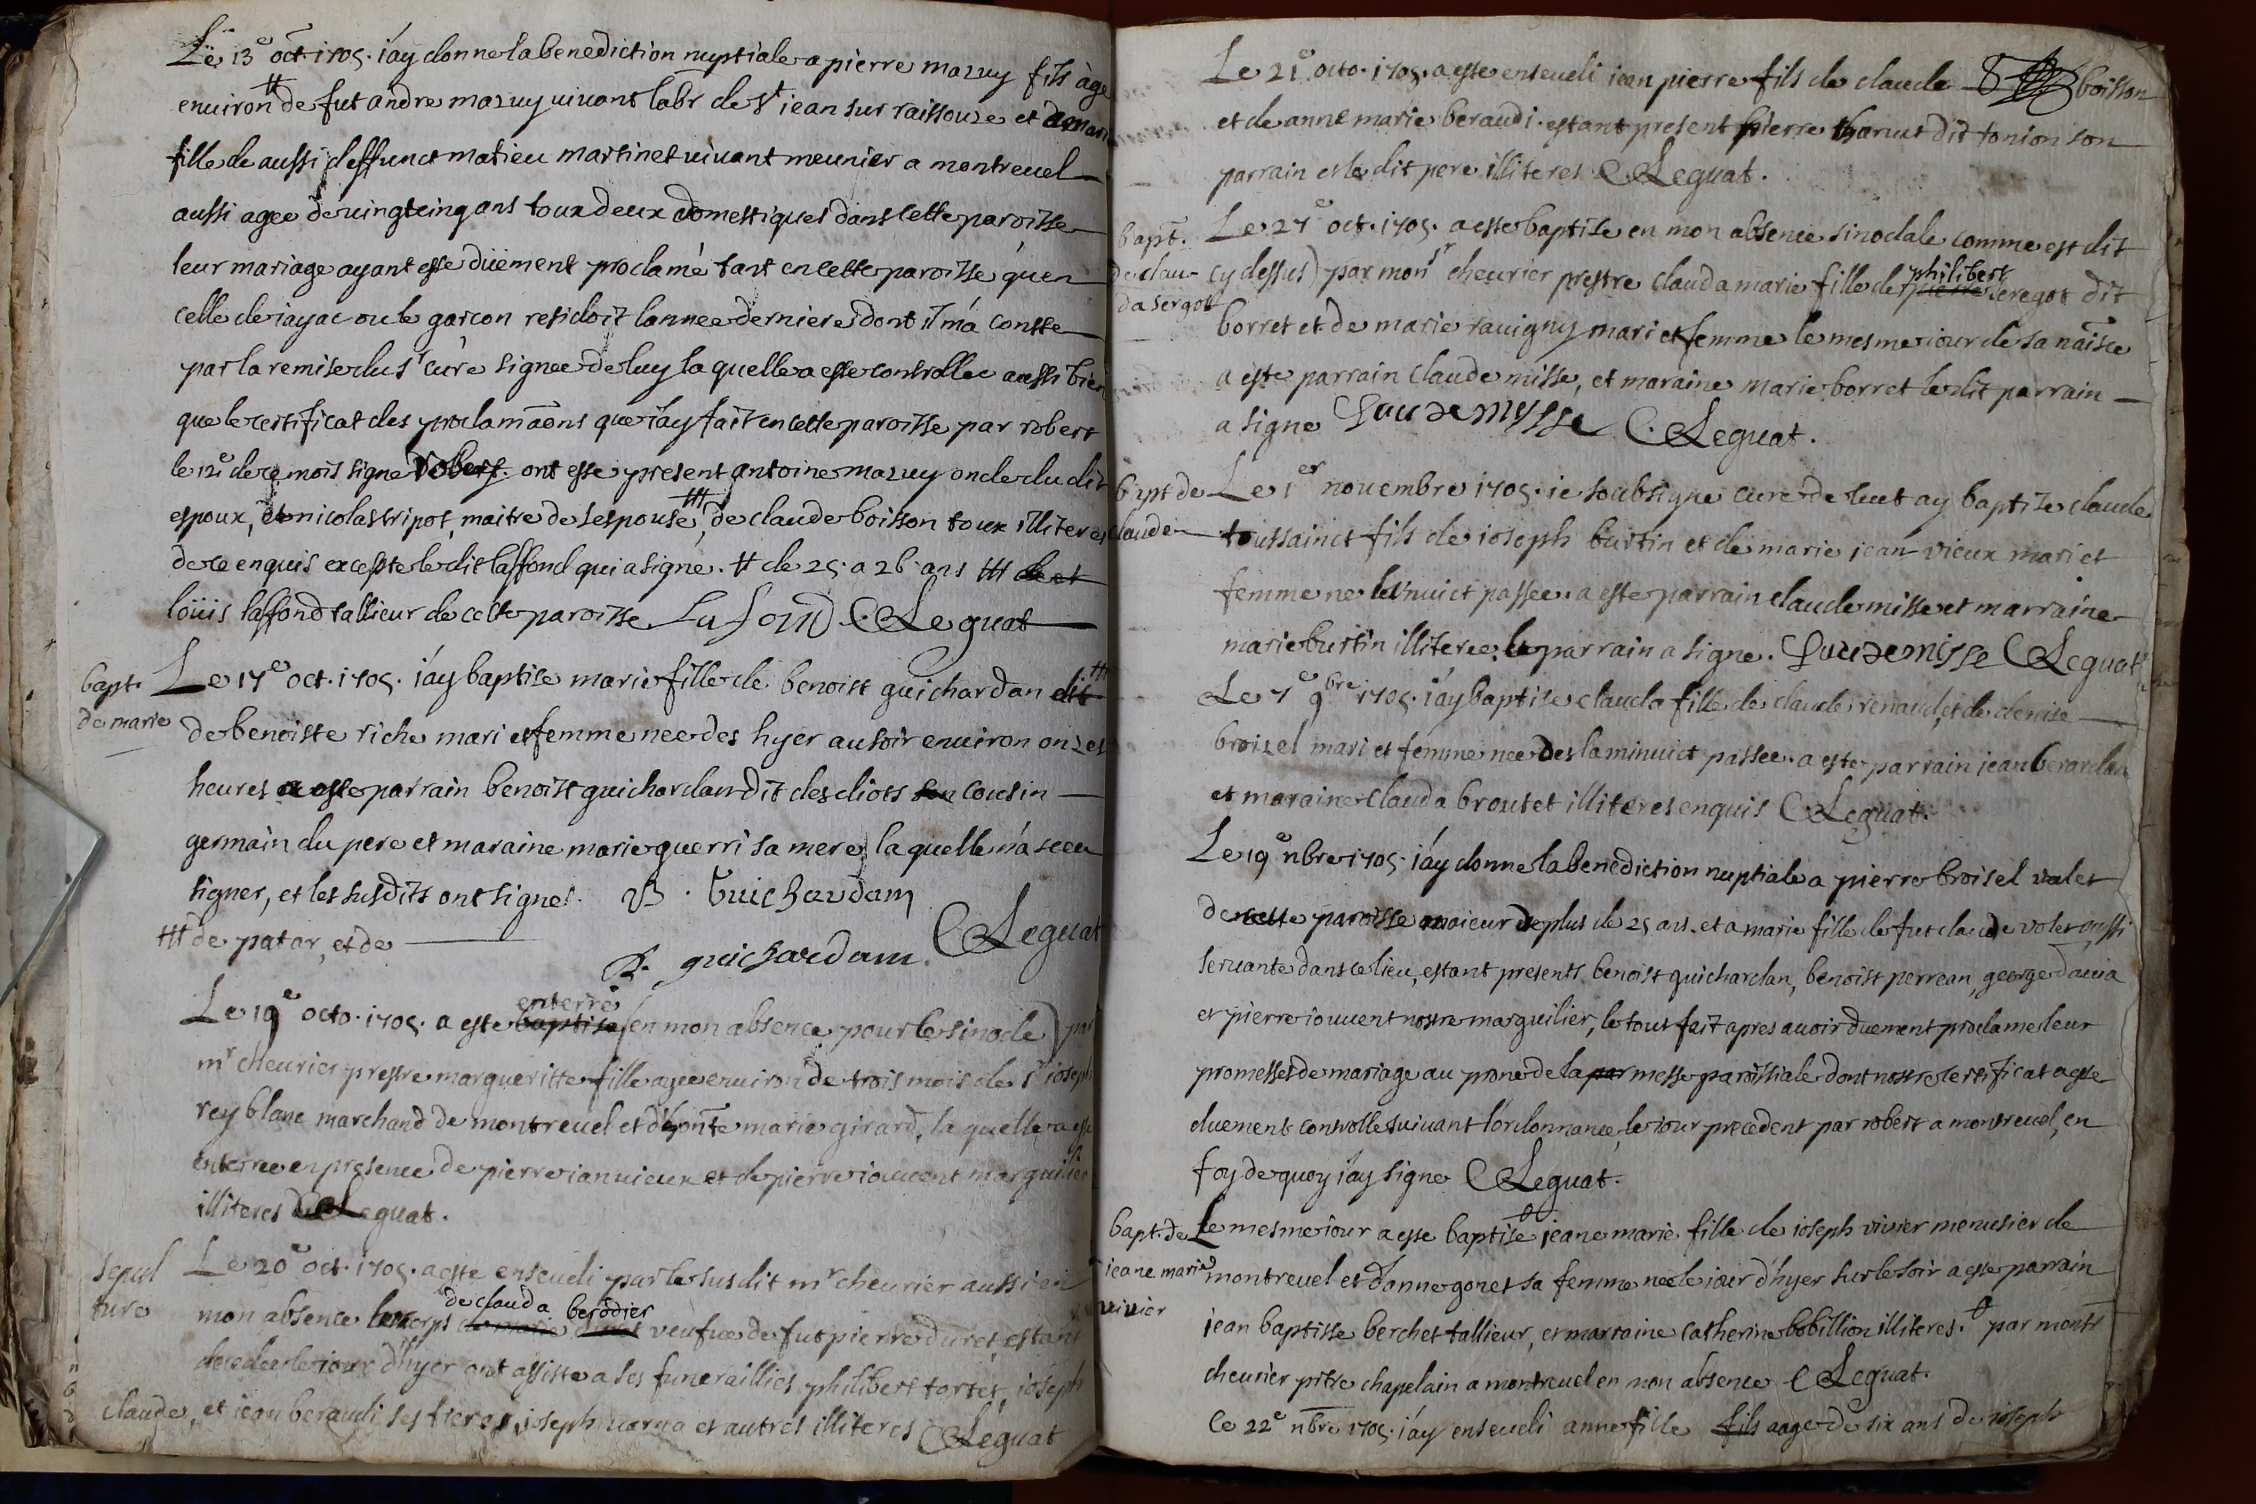 Le 13e oct. 1705. i'ay donne la benediction nuptiale a pierre mazuy fils àge
enuiron # de fut andre mazuy uiuant labr de st iean sur raissouze et a mari
fille de aussi deffunct matieu martinet uiuant meunier a montreuel
aussi agee de uingtcinq ans toux deux domestiques dans cette paroisse
leur mariage ayant esse düement proclamé tant en cette paroisse qu'en
celle de iayac ou le garcon residoit lannee derniere dont il m'a consse
par la remise du sr cure signee de luy la quelle a esse controllee aussi bien
que le certificat des proclamaons que i'ay fait en cette paroisse par robert
le 12e de ce mois signe Robert. ont esse present antoine mazuy oncle du dit
espoux, et nicolas tripot, maitre de sespouse, ### de claude boisson toux illiteres
de ce enquis excepte le dit laffond qui a signé. # de 25. a 26. ans ###
loüis laffond tallieur de cette paroisse Lafond C Leguat
bapt.
de marie
Le 17e oct. 1705. i'ay baptise marie fille de benoist guichardan ###
de benoiste riche mari et femme nee des hyer au soir enuiron onzes
heures a esse parrain benoist guichardan dit des diots cousin
germain du pere et maraine marie guerri sa mere la quelle n'a sceu
signer, et les susdits ont signes. B. Guichardam
### de patar, et de
B. guichardam. C Leguat
Le 19e octo. 1705. a este enterre baptise (en mon absence pour le sinode) par
mr cheurier prestre margueritte fille agee enuiron de trois mois de sr ioseph
rey blanc marchand de montreuel et d'honte marie girard, la quelle a esse
enterree en presence de pierre ianuieux et de pierre iouuent marguilier
illiteres C Leguat.
sepul
ture
Le 20e oct. 1705. a este enseueli par le susdit mr cheurier aussi en
mon absence le corps de clauda berodier veufue de fut pierre duret, estant
decedee le iour d'hyer ont assiste a ses funerailles philibert tortet, ioseph
claude, et iean beraudi ses fieros, ioseph uarna et autres illiteres C Leguat
Le 21e octo. 1705. a este enseueli iean pierre fils de claude boisson
et de anne marie beraudi. estant present pierre tharut dit tonion son
parrain et le dit pere illiteres C Leguat.
bapt.
de clau-
da sergot
Le 27e oct. 1705. a este baptise en mon absence sinodale comme est dit
cy dessus) par monsr cheurier prestre clauda marie fille de philibert seregot dit
borret et de marie rauigny mari et femme le mesme iour de sa naisce
a este parrain claude misse, et maraine marie borret le dit parrain
a signe Claude Mysse C. Leguat.
bapt de
claude
Le 1er nouembre 1705. ie soubsigne cure de luet ay baptise claude
toussainct fils de ioseph burtin et de marie iean vieux mari et
femme ne le nuict passee. a este parrain claude misse et marraine
marie burtin illiteree, le parrain a signe. Claude misse C Leguat
Le 7e 9bre 1705. i'ay baptise clauda fille de claude renaud, et de denise
broizel mari et femme nee des la minuict passee. a este parrain iean berardan
et maraine clauda broutet illiteres enquis C Leguat.
Le 19e nbre 1705. i'ay donne la benediction nuptiale a pierre broisel valet
de cette paroisse maieur de plus de 25 ans. et a marie fille de fut claude volet aussi
seruante dans ce lieu, estant presents benoist guichardan, benoist perrean, george dauia
et pierre iouuent nostre marguilier, le tout fait apres auoir duement proclames leur
promesses de mariage au prone de la par messe paroissiale dont nostre certificat a esse
duement controlle suiuant l'ordonnance, le iour precedent par robert a montreuel, en
foy de quoy i'ay signe C Leguat.
bapt. de
ieane marie
uiuier
Le mesme iour a esse baptise ieane marie fille de ioseph viuier menusier de
montreuel et d'anne gonet sa femme nee le iour d'hyer sur le soir a esse parrain
jean baptisse berchet tallieur, et marraine catherine bobillion illiteres. par monsr
cheurier pttre chapelain a montreuel en mon absence C Leguat.
Le 22e nbre 1705. i'ay enseueli anne fille fils aage de six ans de ioseph